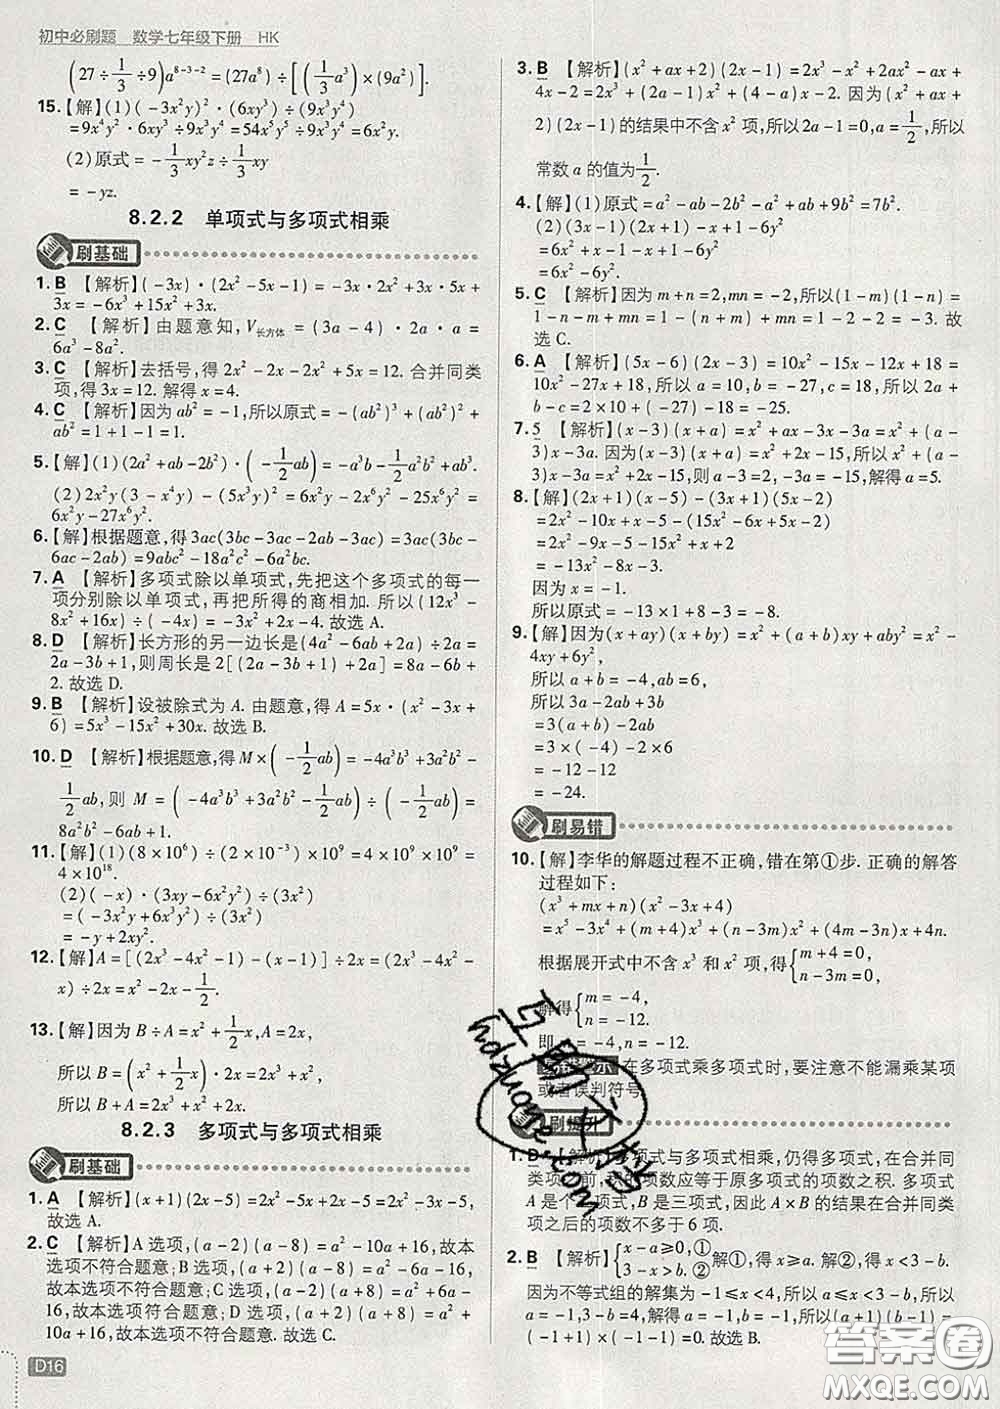 初中必刷题 数学七年级下册 HK
(27÷1/3÷9)a⁸⁻³⁻²=(27a⁸)÷[(1/3a³)×(9a²)].
15.【解】(1)(-3x²y)²·(6xy³)÷(9x³y⁴)
=9x⁴y²·6xy³÷9x³y⁴=54x⁵y⁵÷9x³y⁴=6x²y.
(2)原式=-1/3xy²z÷1/3xy
=-yz.
8.2.2 单项式与多项式相乘
刷基础
1. B 【解析】(-3x)·(2x²-5x-1)=-3x·2x²+3x·5x+
3x=-6x³+15x²+3x.
2. C 【解析】由题意知,V长方体=(3a-4)·2a·a=
6a³-8a².
3. C 【解析】去括号,得2x²-2x-2x²+5x=12.合并同类
项,得3x=12.解得x=4.
4. C 【解析】因为ab²=-1,所以原式=-(ab²)³+(ab²)²+
ab²=1+1-1=1.
5.【解】(1)(2a²+ab-2b²)·(-1/2ab)=-a³b-1/2a²b²+ab³.
(2)2x²y(3-x⁴y)-(5x³y)²=6x²y-2x⁶y²-25x⁶y²=
6x²y-27x⁶y².
6.【解】根据题意,得3ac(3bc-3ac-2ab-3ac)=3ac(3bc-
6ac-2ab)=9abc²-18a²c²-6a²bc.
7. A 【解析】多项式除以单项式,先把这个多项式的每一
项分别除以单项式,再把所得的商相加.所以(12x³-
8x²+16x)÷(-4x)=-3x²+2x-4.故选A.
8. D 【解析】长方形的另一边长是(4a²-6ab+2a)÷2a=
2a-3b+1,则周长是2[(2a-3b+1)+2a]=8a-6b+
2.故选D.
9. B 【解析】设被除式为A.由题意,得A=5x·(x²-3x+
6)=5x³-15x²+30x.故选B.
10. D 【解析】根据题意,得M×(-1/2ab)=-4a³b³+3a²b²-
1/2ab,则M=(-4a³b³+3a²b²-1/2ab)÷(-1/2ab)=
8a²b²-6ab+1.
11.【解】(1)(8×10⁶)÷(2×10³)²... ×10⁹=4×10⁹×10⁹=
4×10¹⁸.
(2)(-x)·(3xy-6x²y²)÷(3x²)
=(-3x²y+6x³y²)÷(3x²)
=-y+2xy².
12.【解】A=[(2x³-4x²-1)-(x-1)]÷2x=(2x³-4x²-
x)÷2x=x²-2x-1/2.
13.【解】因为B÷A=x²+1/2x,A=2x,
所以B=(x²+1/2x)·2x=2x³+x².
所以B+A=2x³+x²+2x.
8.2.3 多项式与多项式相乘
刷基础
1. A 【解析】(x+1)(2x-5)=2x²-5x+2x-5=2x²-3x-5,
故选A.
2. C 【解析】A选项,(a-2)(a-8)=a²-10a+16,故本
选项不符合题意;B选项,(a+2)(a-8)=a²-6a-16,
故本选项不符合题意;C选项,(a-2)(a+8)=a²+6a-
16,故本选项符合题意;D选项,(a+2)(a+8)=a²+
10a+16,故本选项不符合题意.故选C.
D16
3. B 【解析】(x²+ax+2)(2x-1)=2x³-x²+2ax²-ax+
4x-2=2x³+(2a-1)x²+(4-a)x-2.因为(x²+ax+
2)(2x-1)的结果中不含x²项,所以2a-1=0,a=1/2,所以
常数a的值为1/2.
4.【解】(1)原式=a²-ab-2b²-a²+ab+9b²=7b².
(2)(3x-1)(2x+1)-x+1-6y²
=6x²+x-1-x+1-6y²
=6x²-6y².
5. C 【解析】因为m+n=2,mn=-2,所以(1-m)(1-n)=
1-n-m+mn=1-(n+m)+mn=1-2-2=-3.故
选C.
6. A 【解析】(5x-6)(2x-3)=10x²-15x-12x+18=
10x²-27x+18,所以a=10,b=-27,c=18,所以2a+
b-c=2×10+(-27)-18=-25.
7. 5 【解析】(x-3)(x+a)=x²+ax-3x-3a=x²+(a-
3)x-3a.因为(x-3)(x+a)=x²+2x-15,所以x²+(a-
3)x-3a=x²+2x-15,则a-3=2,-3a=-15,解得a=5.
8.【解】(2x+1)(x-5)-(3x+1)(5x-2)
=2x²-10x+x-5-(15x²-6x+5x-2)
=2x²-9x-5-15x²+x+2
=-13x²-8x-3.
因为x=-1,
所以原式=-13×1+8-3=-8.
9.【解】因为(x+ay)(x+by)=x²+(a+b)xy+aby²=x²-
4xy+6y²,
所以a+b=-4,ab=6,
所以3a-2ab+3b
=3(a+b)-2ab
=3×(-4)-2×6
=-12-12
=-24.
刷易错
10.【解】李华的解题过程不正确,错在第①步.正确的解答
过程如下:
(x³+mx+n)(x²-3x+4)
=x⁵-3x⁴+(m+4)x³+(n-3m)x²+(4m-3n)x+4n.
根据展开式中不含x³和x²项,得{m+4=0, n-3m=0.
解得{m=-4, n=-12.
即m=-4,n=-12.
在多项式乘多项式时,要注意不能漏乘某项
或者误判符号.
刷提升
1. D 【解析】多项式与多项式相乘,仍得多项式,在合并同
类项之前,积的项数应等于原多项式的项数之积.多项式
A是个项式,B是三项式,因此A×B的结果在合并同类
项之后的项数不多于6项.
2. B 【解析】{x-a≥0,① 3-x>b.② 解①,得x≥a.解②,得x<3-b.
因为不等式组的解集为-1≤x<4,所以a≤x<3-b,所以
a=-1,3-b=4,解得a=-1,b=-1,所以(a+1)(b-
1)=0×(-2)=0.故选B.
答案圈
MXQE.COM
hdzuoye.com